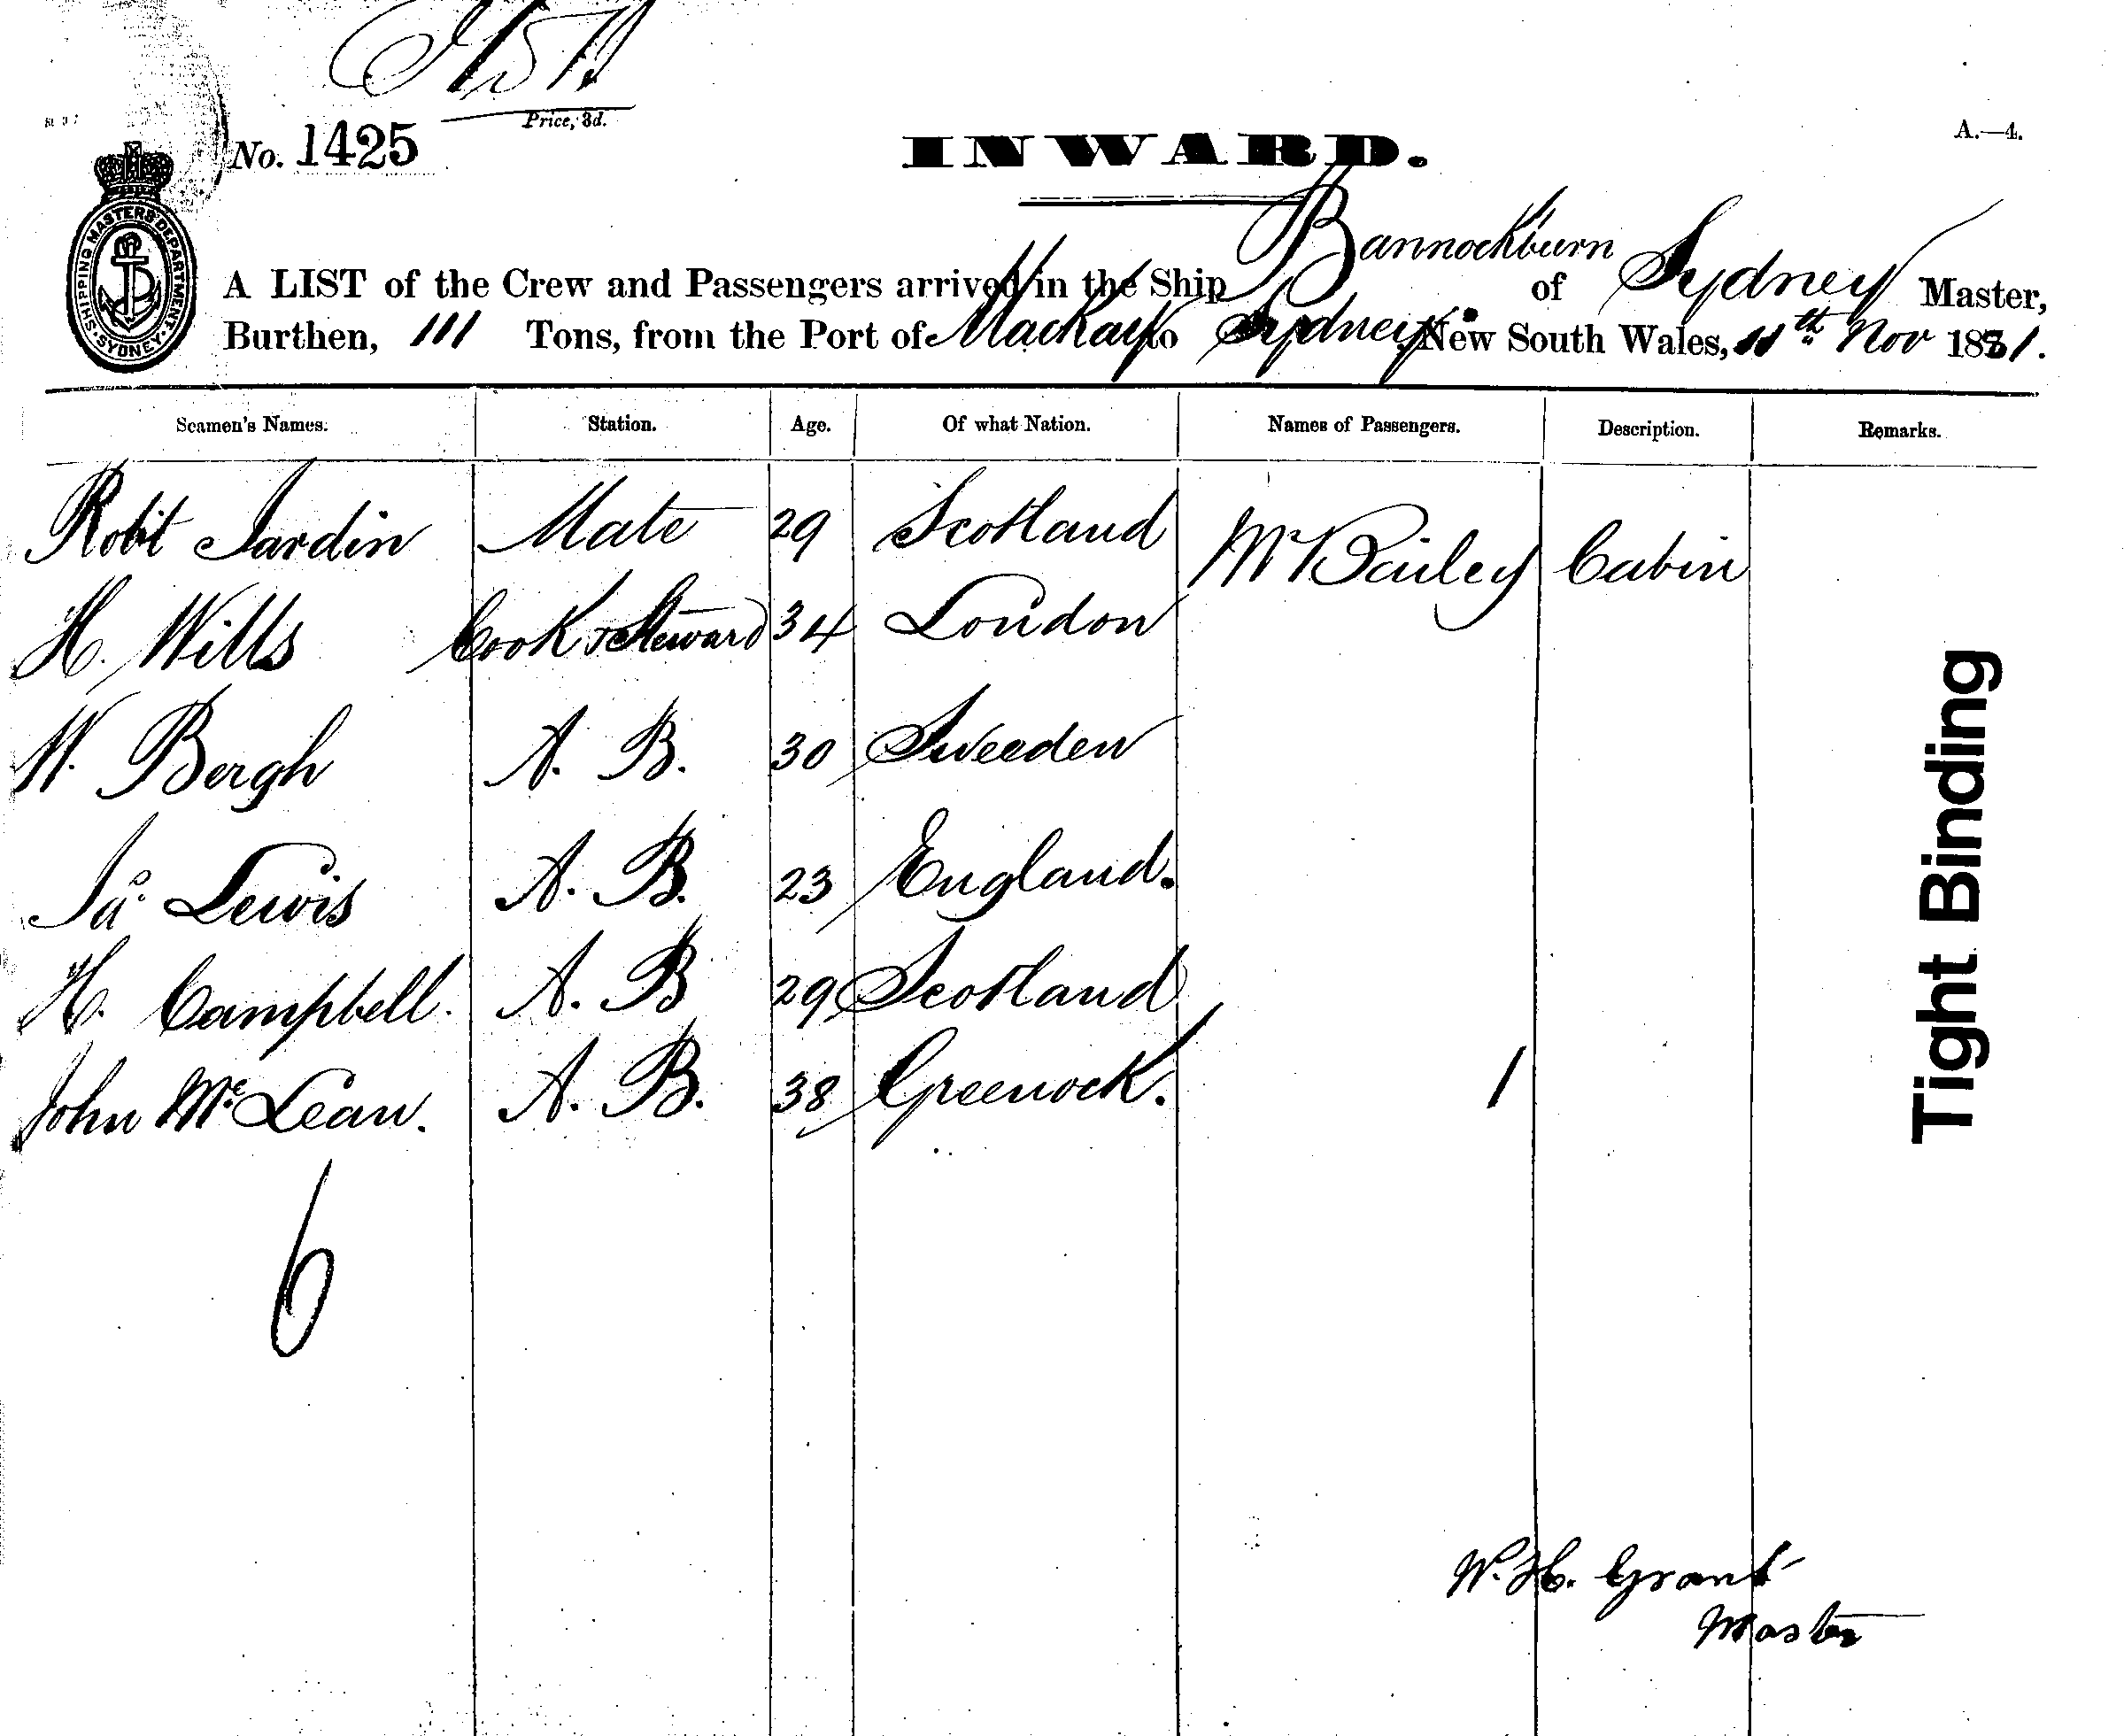 Price, 3d.
No. 1425
INWARD.
A.—4.
SHIPPING MASTERS' DEPARTMENT. SYDNEY.
A LIST of the Crew and Passengers arrived in the Ship Bannockburn of Sydney Master,
Burthen, 111 Tons, from the Port of Mackay to Sydney New South Wales, 11th Nov 1881.
Seamen's Names. Station. Age. Of what Nation. Names of Passengers. Description. Remarks.
Robt Jardin Mate 29 Scotland Mr Bailey Cabin
H. Wills Cook & Steward 34 London
W. Bergh A. B. 30 Sweeden
Ja⁠s. Lewis A. B. 23 England.
H. Campbell. A. B 29 Scotland
John McLean. A. B. 38 Greenock. 1
6
Tight Binding
W. H. Grant
Master